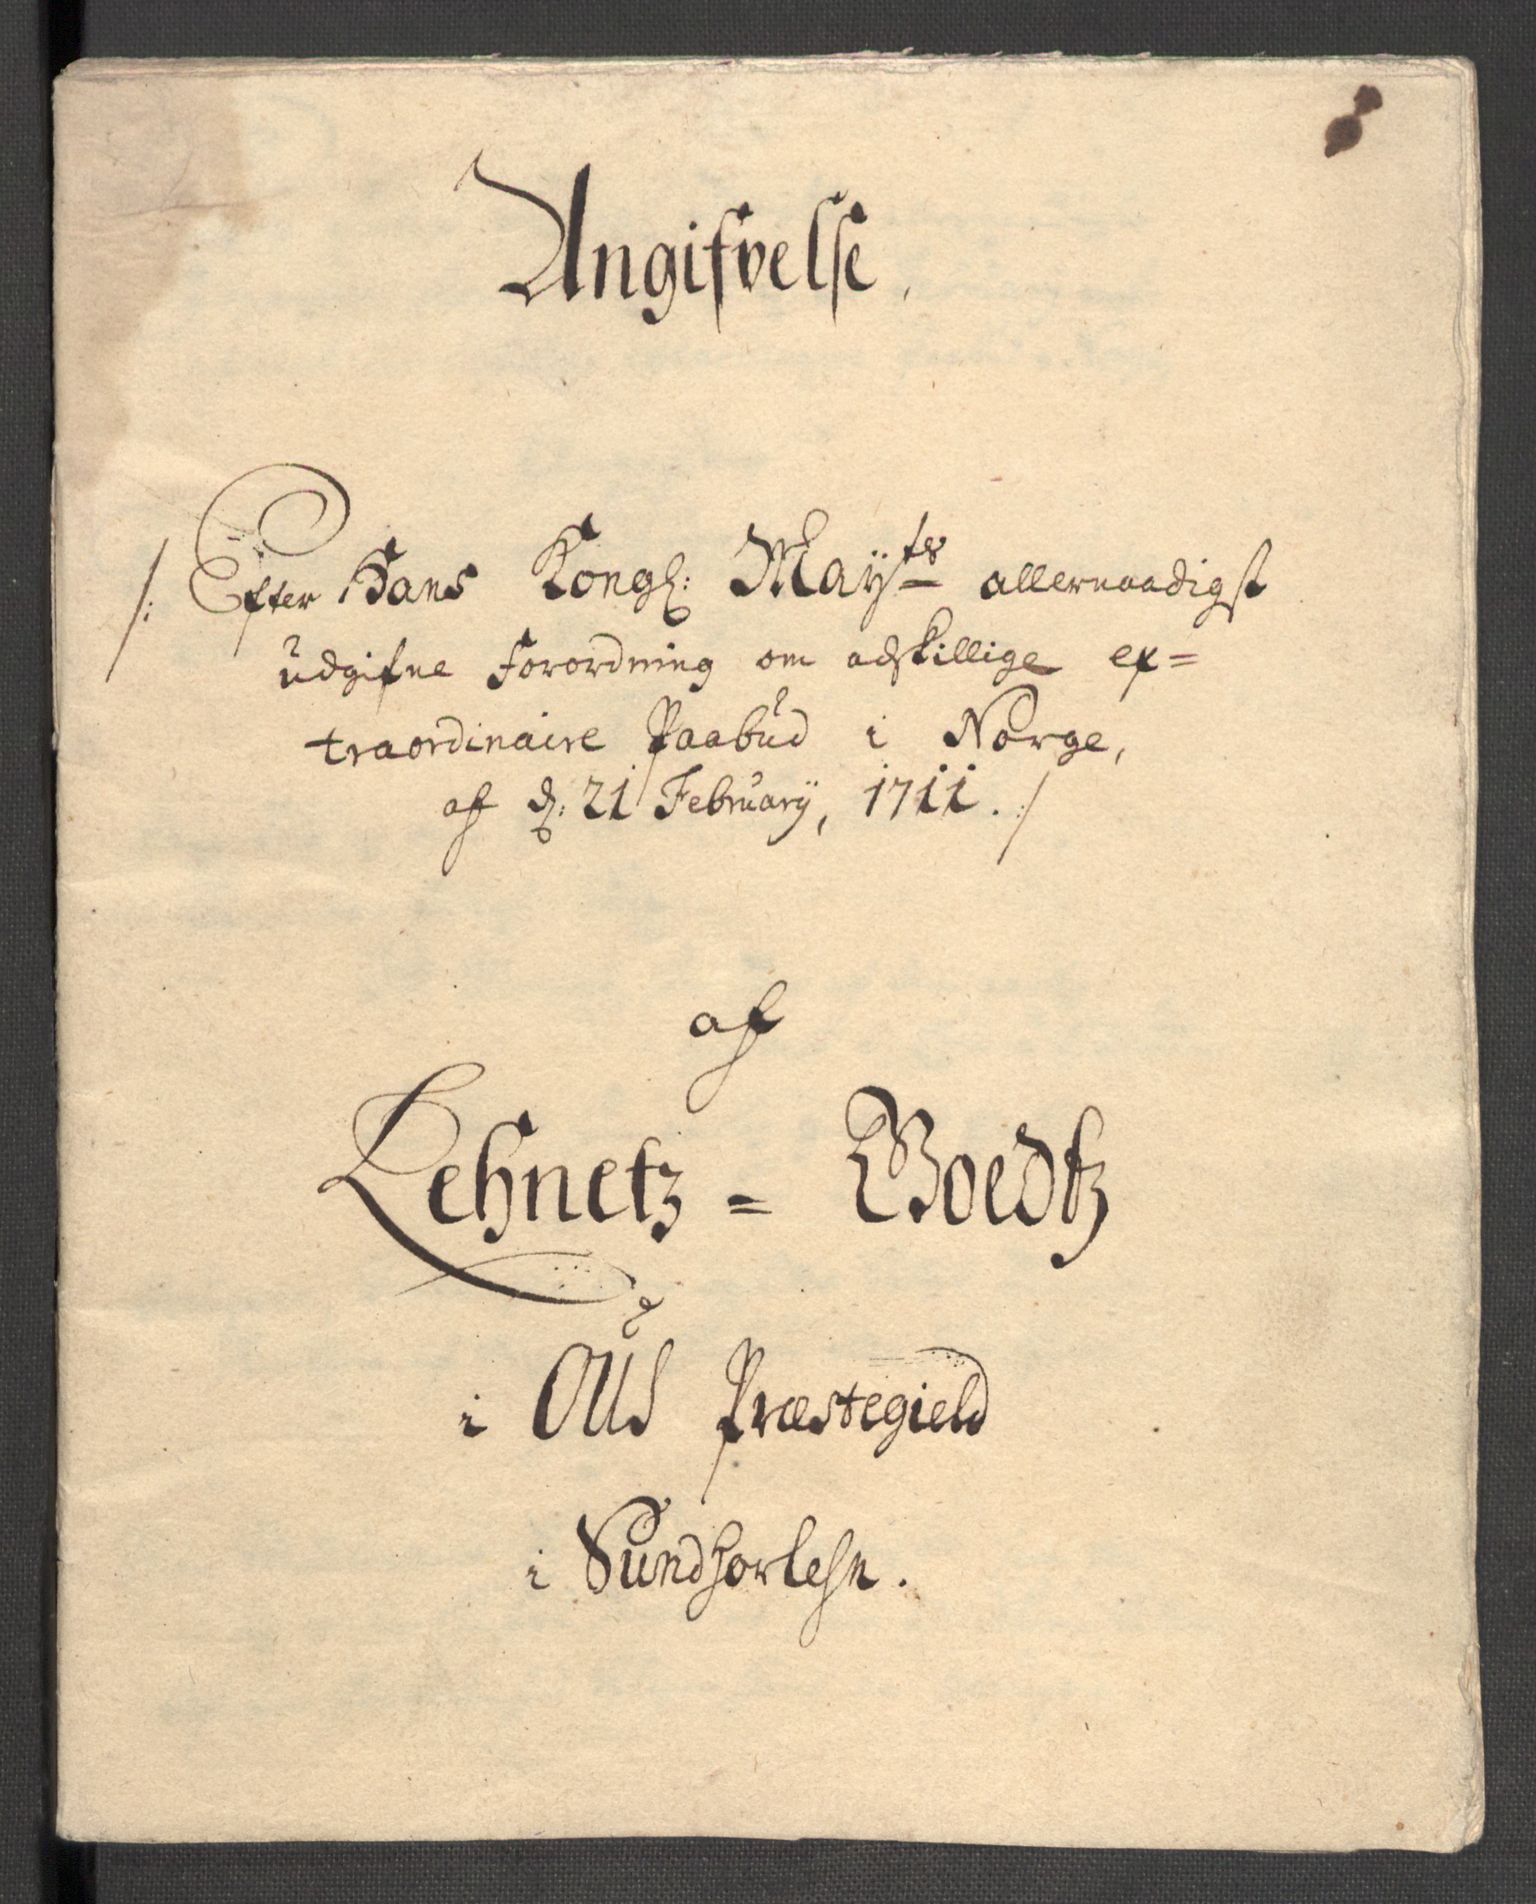 Angifvelse,
/: Efter Hans Kongl: Mayts allernaadigst
udgifne Forordning om adskillige ex=
traordinaire Paabud i Norge,
af d: 21 February, 1711. :/
af
Lehnetz = Goedtz
i Ous Præstegield
i Sundhorlehn.